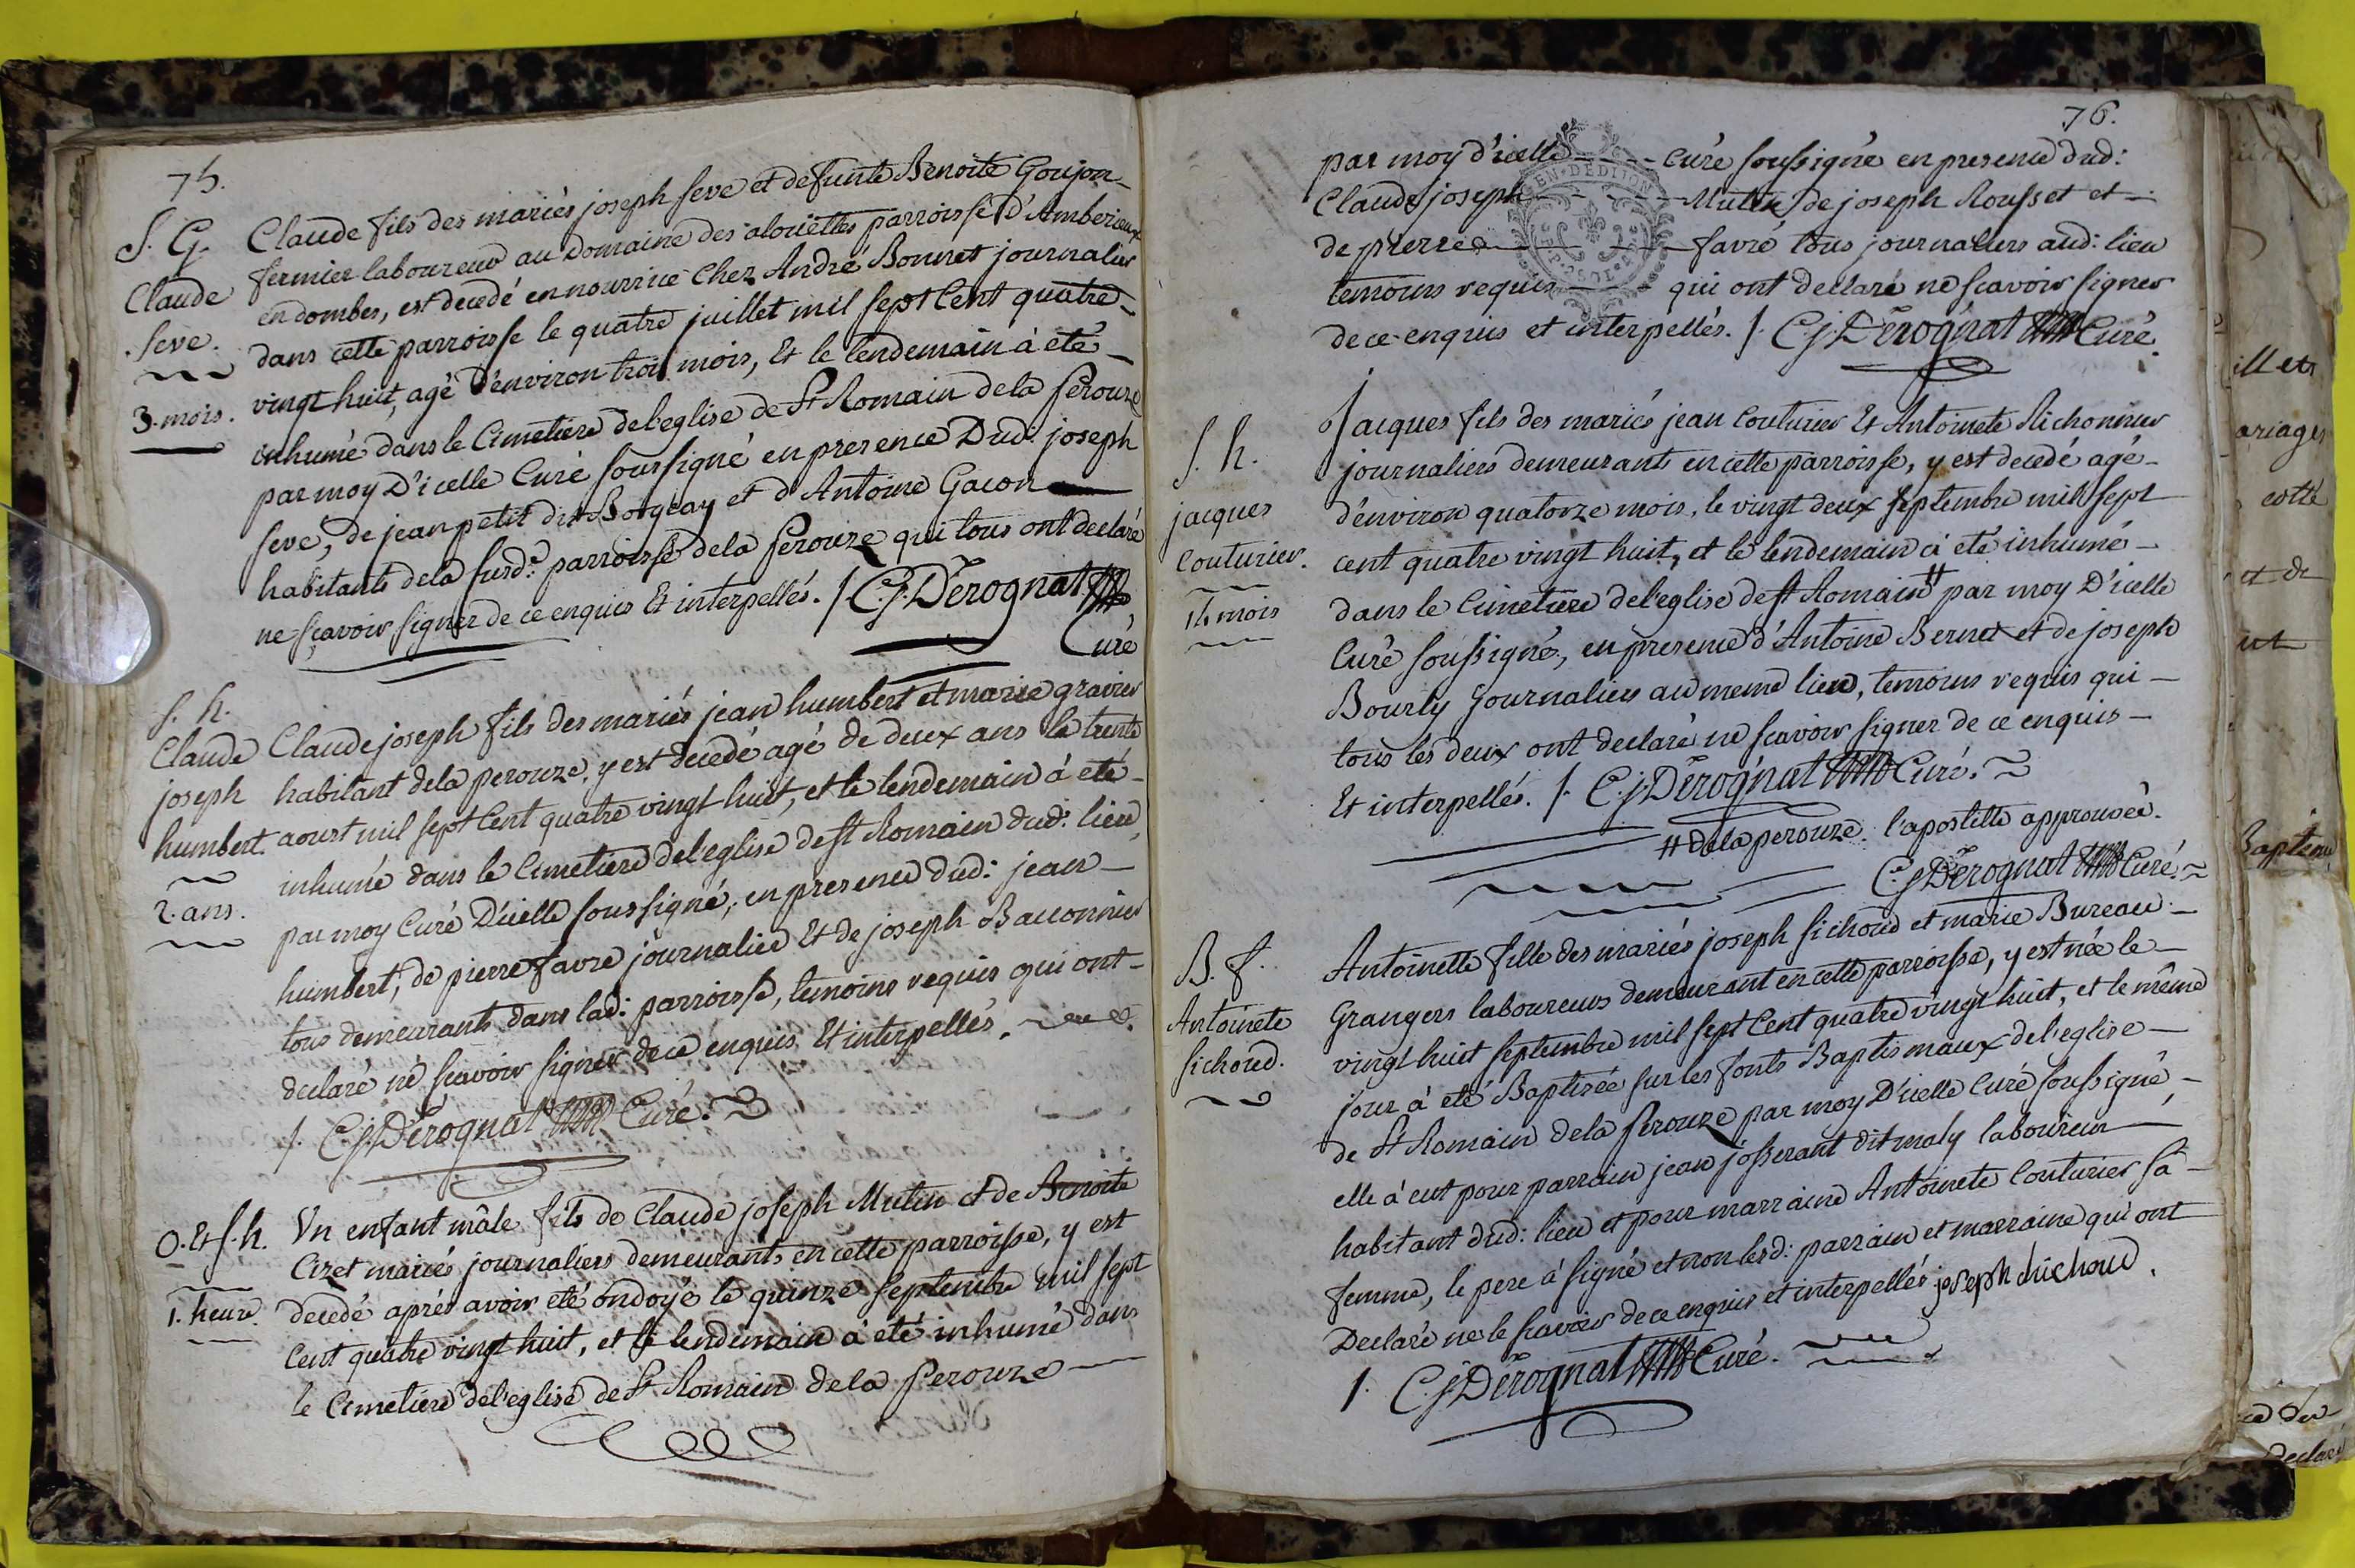 75.
S. G.
Claude
Seve.
3. mois.
Claude fils des mariés joseph seve et defunte Benoite Goujon
fermier laboureur au Domaine des alouettes parroisse d'Amberieux
en dombes, est decedé en nourrice chez André Bonnet journalier
dans cette parroisse le quatre juillet mil sept Cent quatre
vingt huit, agé d'environ trois mois, Et le lendemain à été
inhumé dans le Cimetiere de l'eglise de St Romain dela Perouze
par moy D'icelle Curé soussigné en presence Dud. joseph
seve, de jean petit dit et d'Antoine Gacon
habitants dela susd.e parroisse dela Perouze qui tous ont declaré
ne sçavoir signer de ce enquis Et interpellés. /. C.j. Derognat
Curé
S. h.
Claude
joseph
humbert.
2. ans.
Claude joseph fils des mariés jean humbert et marie gravier
habitant dela perouze, y est decedé agé de deux ans le trente
aoust mil sept Cent quatre vingt huit, et le lendemain à été
inhumé dans le Cimetiere de l'eglise de st Romain dud: lieu
par moy Curé D'icelle soussigné, en presence dud: jean
humbert, de pierre favre journalier Et de joseph Baconnier
tous demeurants dans lad: parroisse, temoins requis qui ont
declaré ne scavoir signer de ce enquis Et interpellés.
/. C.j. Derognat Curé.
O. Et S. h.
1. heure.
Un enfant mâle fils de Claude joseph Mutin et de Benoite
Cizet mariés journaliers demeurants en cette parroisse, y est
decedé après avoir eté ondoyé le quinze septembre mil sept
Cent quatre vingt huit, et le lendemain à été inhumé dans
le Cimetiere de l'eglise de St Romain dela Perouze
76.
par moy d'icelle Curé soussigné en presence dud:
Claude joseph Mutin de joseph Rousset et
de pierre favre tous journaliers aud: lieu
temoins requis qui ont declaré ne scavoir signer
de ce enquis et interpellés. /. C.j. Derognat Curé.
GEN. DE DIJON
S. h.
jacques
Couturier.
14 mois
Jacques fils des mariés jean Couturier Et Antoinete Richonnier
journaliers demeurants en cette parroisse, y est decedé agé
d'environ quatorze mois, le vingt deux septembre mil sept
cent quatre vingt huit, et le lendemain à été inhumé
dans le Cimetiere de l'eglise de st Romain # par moy D'icelle
Curé soussigné, en presence d'Antoine Bernet et de joseph
Bourly Journaliers au meme lieu, temoins requis qui
tous les deux ont declaré ne scavoir signer de ce enquis
Et interpellés. /. C.j. Derognat Curé.
# dela perouze. l'apostille approuvée.
C.j. Derognat Curé.
B. f.
Antoinete
sichoud.
Antoinette fille des mariés joseph sichoud et marie Bureau
Grangers laboureurs demeurant en cette parroisse, y est née le
vingt huit septembre mil sept Cent quatre vingt huit, et le même
jour à eté Baptisée sur les fonts Baptismaux de l'eglise
de St Romain dela Perouze par moy D'icelle Curé soussigné,
elle à eut pour parrain jean josserant dit maly laboureur
habitant dud: lieu et pour marraine Antoinete Couturier sa
femme, le pere à signé et non lesd: parrain et marraine qui ont
Declaré ne le scavoir de ce enquis et interpellés joseph chichoud.
/. C.j. Derognat Curé.